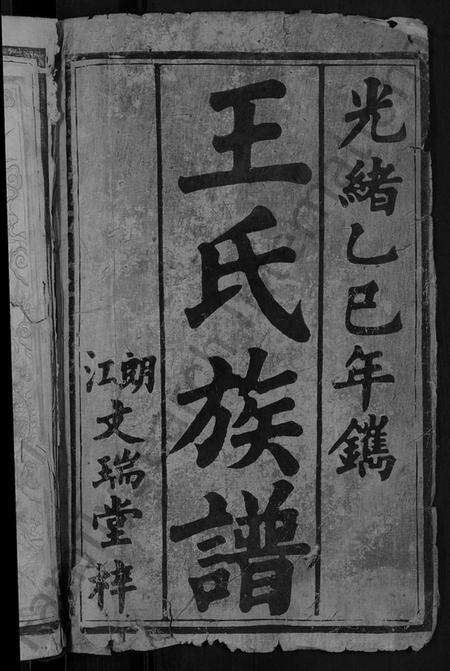 光緒乙巳年鐫
王氏族譜
朗江文瑞堂梓